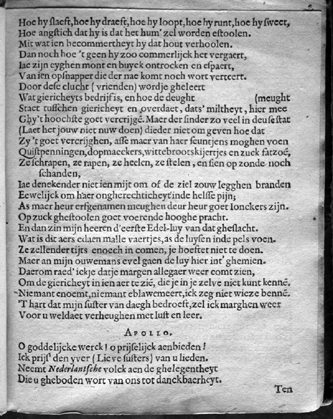 Hoe hy slaeft, hoe hy draeft, hoe hy loopt, hoe hy runt, hoe hy sweet,
Hoe angstich dat hy is dat het hum' zel worden estoolen.
Mit wat ien becommertheyt hy dat hout verhoolen.
Dan noch hoe 't geen hy zoo commerlijck het vergaert,
Iae zijn eyghen mont en buyck ontrocken en espaert,
Van ien opsnapper die der nae komt noch wort verteert.
Door dese clucht (vrienden) wordje gheleert
Wat giericheyts bedrijf is, en hoe de deught (meught
Staet tusschen giericheyt en overdaet, dats' miltheyt, hier mee
Ghy't hoochste goet vercrijgē. Maer der sinder zo veel in deuse stat
(Laet her jouw niet nuw doen) dieder niet om geven hoe dat
Zy 't goet vercrijghen, asse maer van haer seuntjens moghen voen
Quistpenningen, dopmaeckers, wittebrootskijertjes en zuck fatzoē,
Ze schrapen, ze rapen, ze heelen, ze stelen, en sien op zonde noch
schanden,
Iae denckender niet ien mijt om of de ziel zouw legghen branden
Eewelijck om haer onghrechticheyt inde helsse pijn;
As maer heur erfgenimen meughen deur heur goet Ionckers zijn.
Op zuck ghestoolen goet voerende hooghe pracht.
En dan zin mijn heeren d'eerste Edel-luy van dat gheslacht.
Wat is dit aers eilaen malle vaertjes, as de luysen inde pels voen.
Ze zellender tijts enoech in comen, je hoefter niet te doen.
Maer an mijn ouwemans evel gaen de luy hier int' ghemien.
Daerom raed' ick je datje margen allegaer weer comt zien,
Om de giericheyt in ien aer te zië, die je in je zelve niet kunt kennē.
Niemant noemt, niemant eblaweert, ick zeg niet wieze bennē.
'T hart dat mijn suster van daegh bedroeft, zel ick marghen weer
Voor u weldaet verheughen met lust en leer.
APOLLO.
O goddelijcke werck! o prijselijck aenbieden!
Ick prijs' den yver (Lieve susters) van u lieden.
Neemt Nederlantsche volck aen de ghelegentheyt
Die u gheboden wort van ons tot danckbaerheyt.
Ten